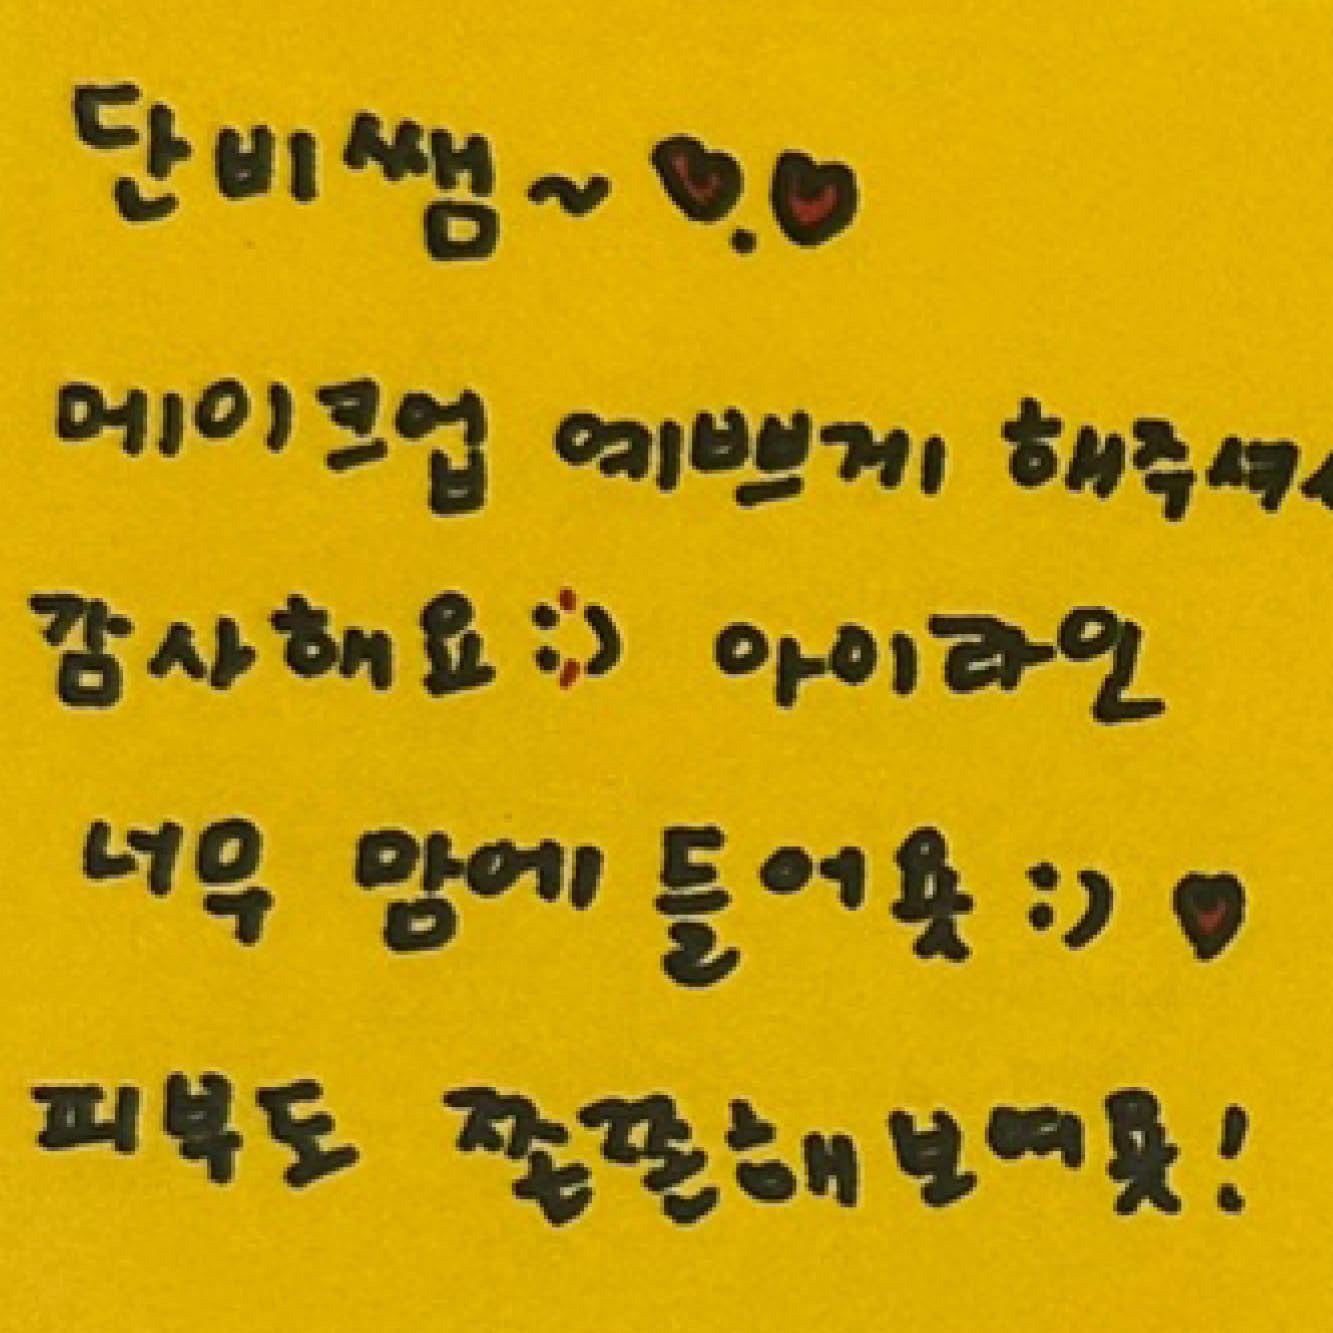 단비쌤~ ♥.♥
메이크업 예쁘게 해주셔서
감사해요 :) 아이라인
너무 맘에 들어욧 :) ♥
피부도 쫀쫀해보여욧!